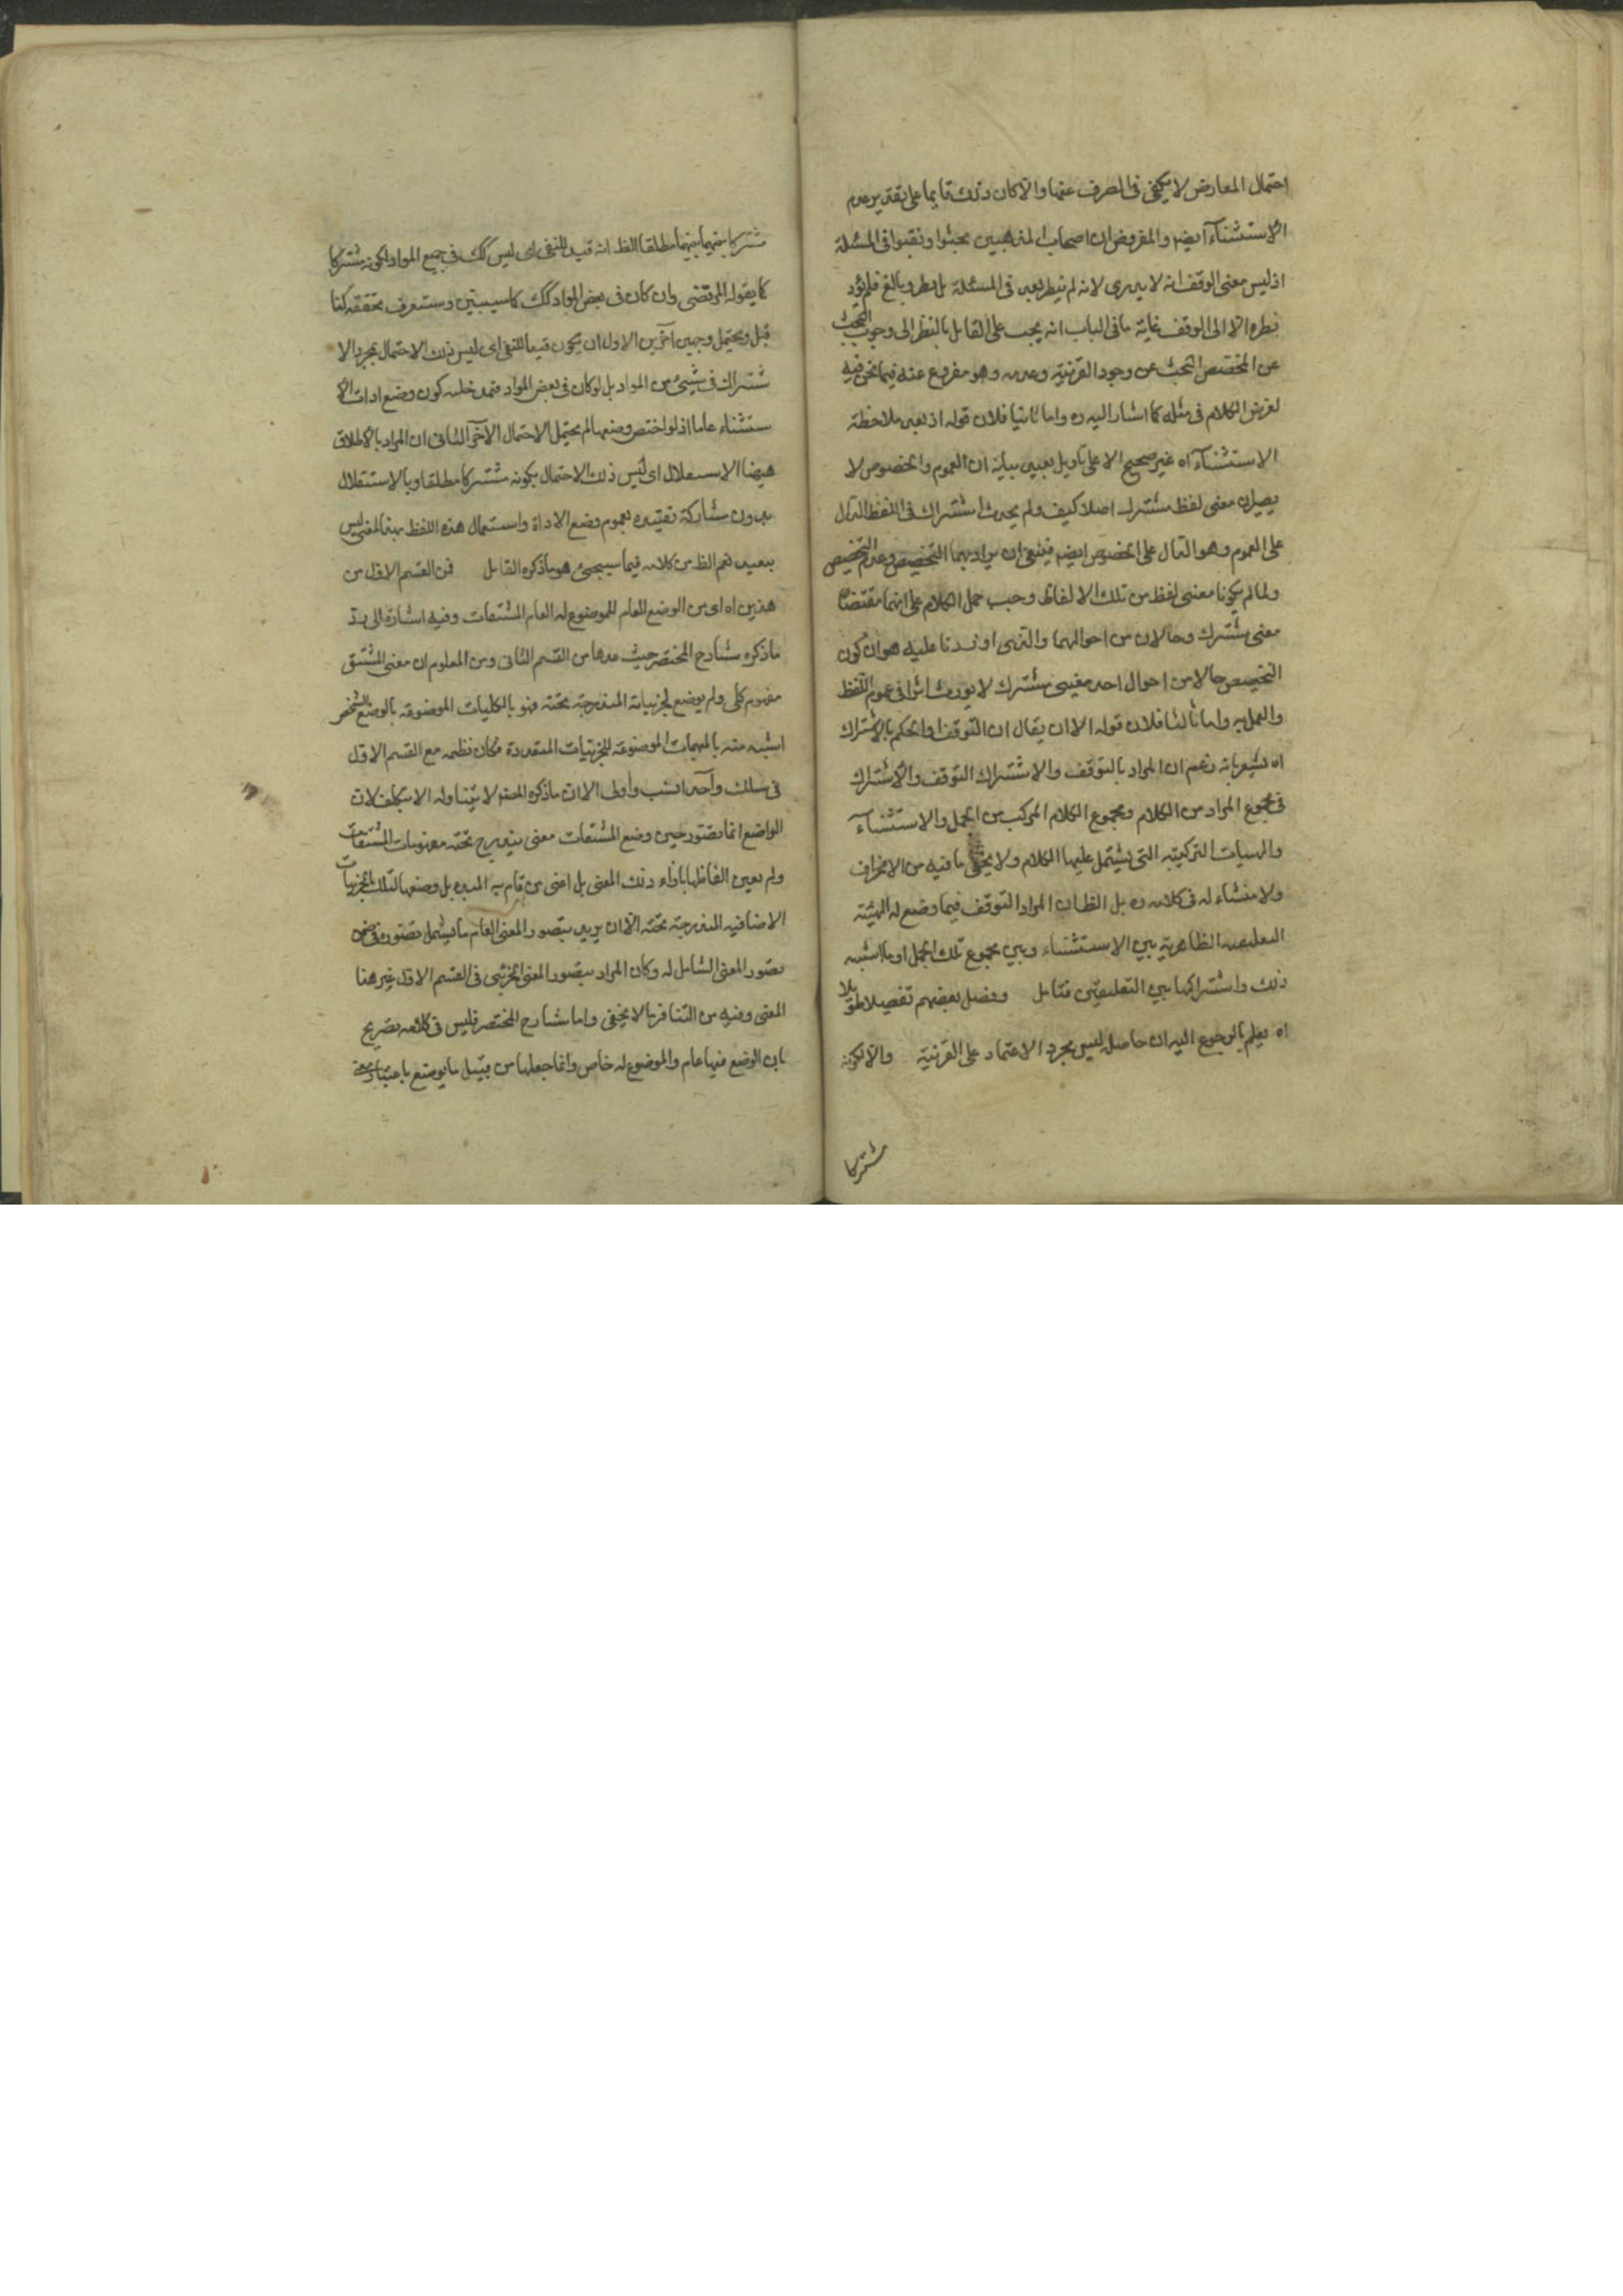 احتمال المعارض لا يكفى فى الصرف عنها والا كان ذلك قايما على تقدير عدم
الاستثناء ايضا والمفروض ان اصحاب المذهبين بحثوا ونقبوا فى المسئلة
اذ ليس معنى الوقف انه لا يدرى لانه لم ينظر بعد فى المسئلة بل نظر وبالغ فلم يؤد
نظره الا الى الوقف غاية ما فى الباب انه يجب على القايل بالنظر الى وجوب البحث
عن المخصص البحث عن وجود القرنية وعدمه وهو مفروغ عنه فيما نحن فيه
لفرض الكلام فى مثله كما اشار اليه ره واما ثانيا فلان قوله اذ بعد ملاحظة
الاستثناء اه غير صحيح الا على تاويل بعيد بيانه ان العموم والخصوص لا
يصيران معنى لفظ مشترك اصلا كيف ولم يحدث اشتراك فى اللفظ الدال
على العموم وهو الدال على الخصوص ايضا فينبغى ان يراد بهما التخصيص وعدم التخصيص
ولما لم يكونا معنى لفظ من تلك الالفاظ وجب حمل الكلام على انهما مقتضيا
معنى مشترك وحالان من احوالهما والذى اوردنا عليه هو ان كون
التخصيص حالا من احوال احد معنيى مشترك لا يورث اثرا فى عموم اللفظ
والعمل به واما ثالثا فلان قوله الا ان يقال ان التوقف او الحكم بالاشتراك
اه يشعر بانه زعم ان المراد بالتوقف والاشتراك التوقف والاشتراك
فى مجموع المراد من الكلام ومجموع الكلام المركب من الجمل والاستثناء
والهيات التركيبيه التى يشتمل عليها الكلام ولا يخفى ما فيه من الانحراف
ولا منشاء له فى كلامه ره بل الظ ان المراد التوقف فيما وضع له الهيئة
التعليقيه الظاهرية بين الاستثناء وبين مجموع تلك الجمل او ما اشبه
ذلك واشتراكها بين التعليقين فتامل وفصل بعضهم تفصيلا طويلا
اه يعلم بالرجوع اليه ان حاصله ليس مجرد الاعتماد على القرنية والا لكونه
مشتركا
مشتركا بينهما مطلقا الظ انه قيد للنفى اى ليس كك فى جميع المواد لكونه مشتركا
كما يقوله المرتضى وان كان فى بعض المواد كك كما سيبين وستعرف تحققه كنا
قبل ويحتمل وجهين آخرين الاول ان يكون قيدا للنفى اى ليس ذلك الاحتمال بمجرد الا
شتراك فى شيئ من المواد بل لو كان فى بعض المواد فمدخلية كون وضع ادات الا
ستثناء عاما اذ لو اختص وضعها لم يحتمل الاحتمال الآخر الثانى ان المراد بالاطلاق
هيهنا الاستقلال اى ليس ذلك الاحتمال بكونه مشتركا مطلقا وبالاستقلال
بدون مشاركة تقييده بعموم وضع الاداة واستعمال هذه اللفظ بهذا المعنى ليس
ببعيد نعم الظ من كلامه فيما سيجئ هو ما ذكره القايل فمن القسم الاول من
هذين اه اى من الوضع العام للموضوع له العام المشتقات وفيه اشارة الى رد
ما ذكره شارح المختصر حيث عدها من القسم الثانى ومن المعلوم ان معنى المشتق
مفهوم كلى ولم يوضع لجزئياته المندرجة تحته فهو بالكليات الموضوعه بالوضع الشخصى
اشبه منه بالمبهمات الموضوعه للجزئيات المتعددة فكان نظمه مع القسم الاول
فى سلك واحد انسب واولى الا ان ما ذكره المص لا يتناوله الا بتكلف لان
الواضع انما تصور حين وضع المشتقات معنى يندرج تحته مفهومات المشتقات
ولم يعين الفاظها بازاء ذلك المعنى بل اعنى من قام به المبدء بل وضعها لتلك الجزئيات
الاضافيه المندرجة تحته الا ان يريد بتصور المعنى العام ما يشمل تصوره فى ضمن
تصور المعنى الشامل له وكان المراد بتصور المعنى الجزئى فى القسم الاول غير هذا
المعنى وفيه من التنافر ما لا يخفى واما شارح المختصر فليس فى كلامه تصريح
بان الوضع فيها عام والموضوع له خاص وانما جعلها من قبيل ما يوضع باعتبار